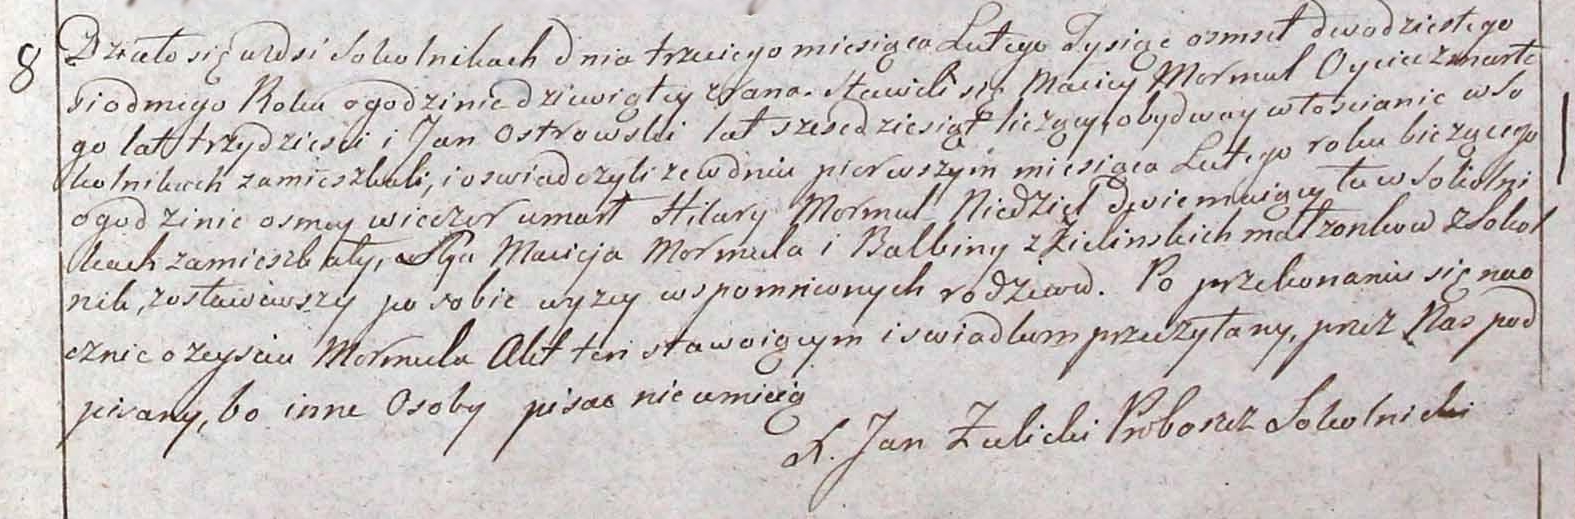 8 Działo się w Wsi Sokolnikach dnia trzeciego miesiąca Lutego Tysiąc osmset dwudziestego
siodmego Roku o godzinie dziewiątey z rana. Stawili się Maciey Mormul Oyciec zmarłe
go lat trzydzieści i Jan Ostrowski lat szescdziesiąt liczący, obydway włościanie w So
kolnikach zamieszkali, i oswiadczyli ze w dniu pierwszym miesiąca Lutego roku bieżącego
o godzinie osmey wieczor umarł Hilary Mormul Niedziel Dwie maiący tu w Sokolni
kach zamieszkały, Syn Macieja Mormula i Balbiny z Zielinskich małżonkow z Sokol
nik, zostawiwszy po sobie wyzey wspomnionych rodziców. Po przekonaniu się nao
cznie o zeysciu Mormula Akt ten stawaiącym i swiadkum przeczytany, przez Nas pod
pisany, bo inne Osoby pisac nie umieią
X. Jan Proboszcz Sokolnicki